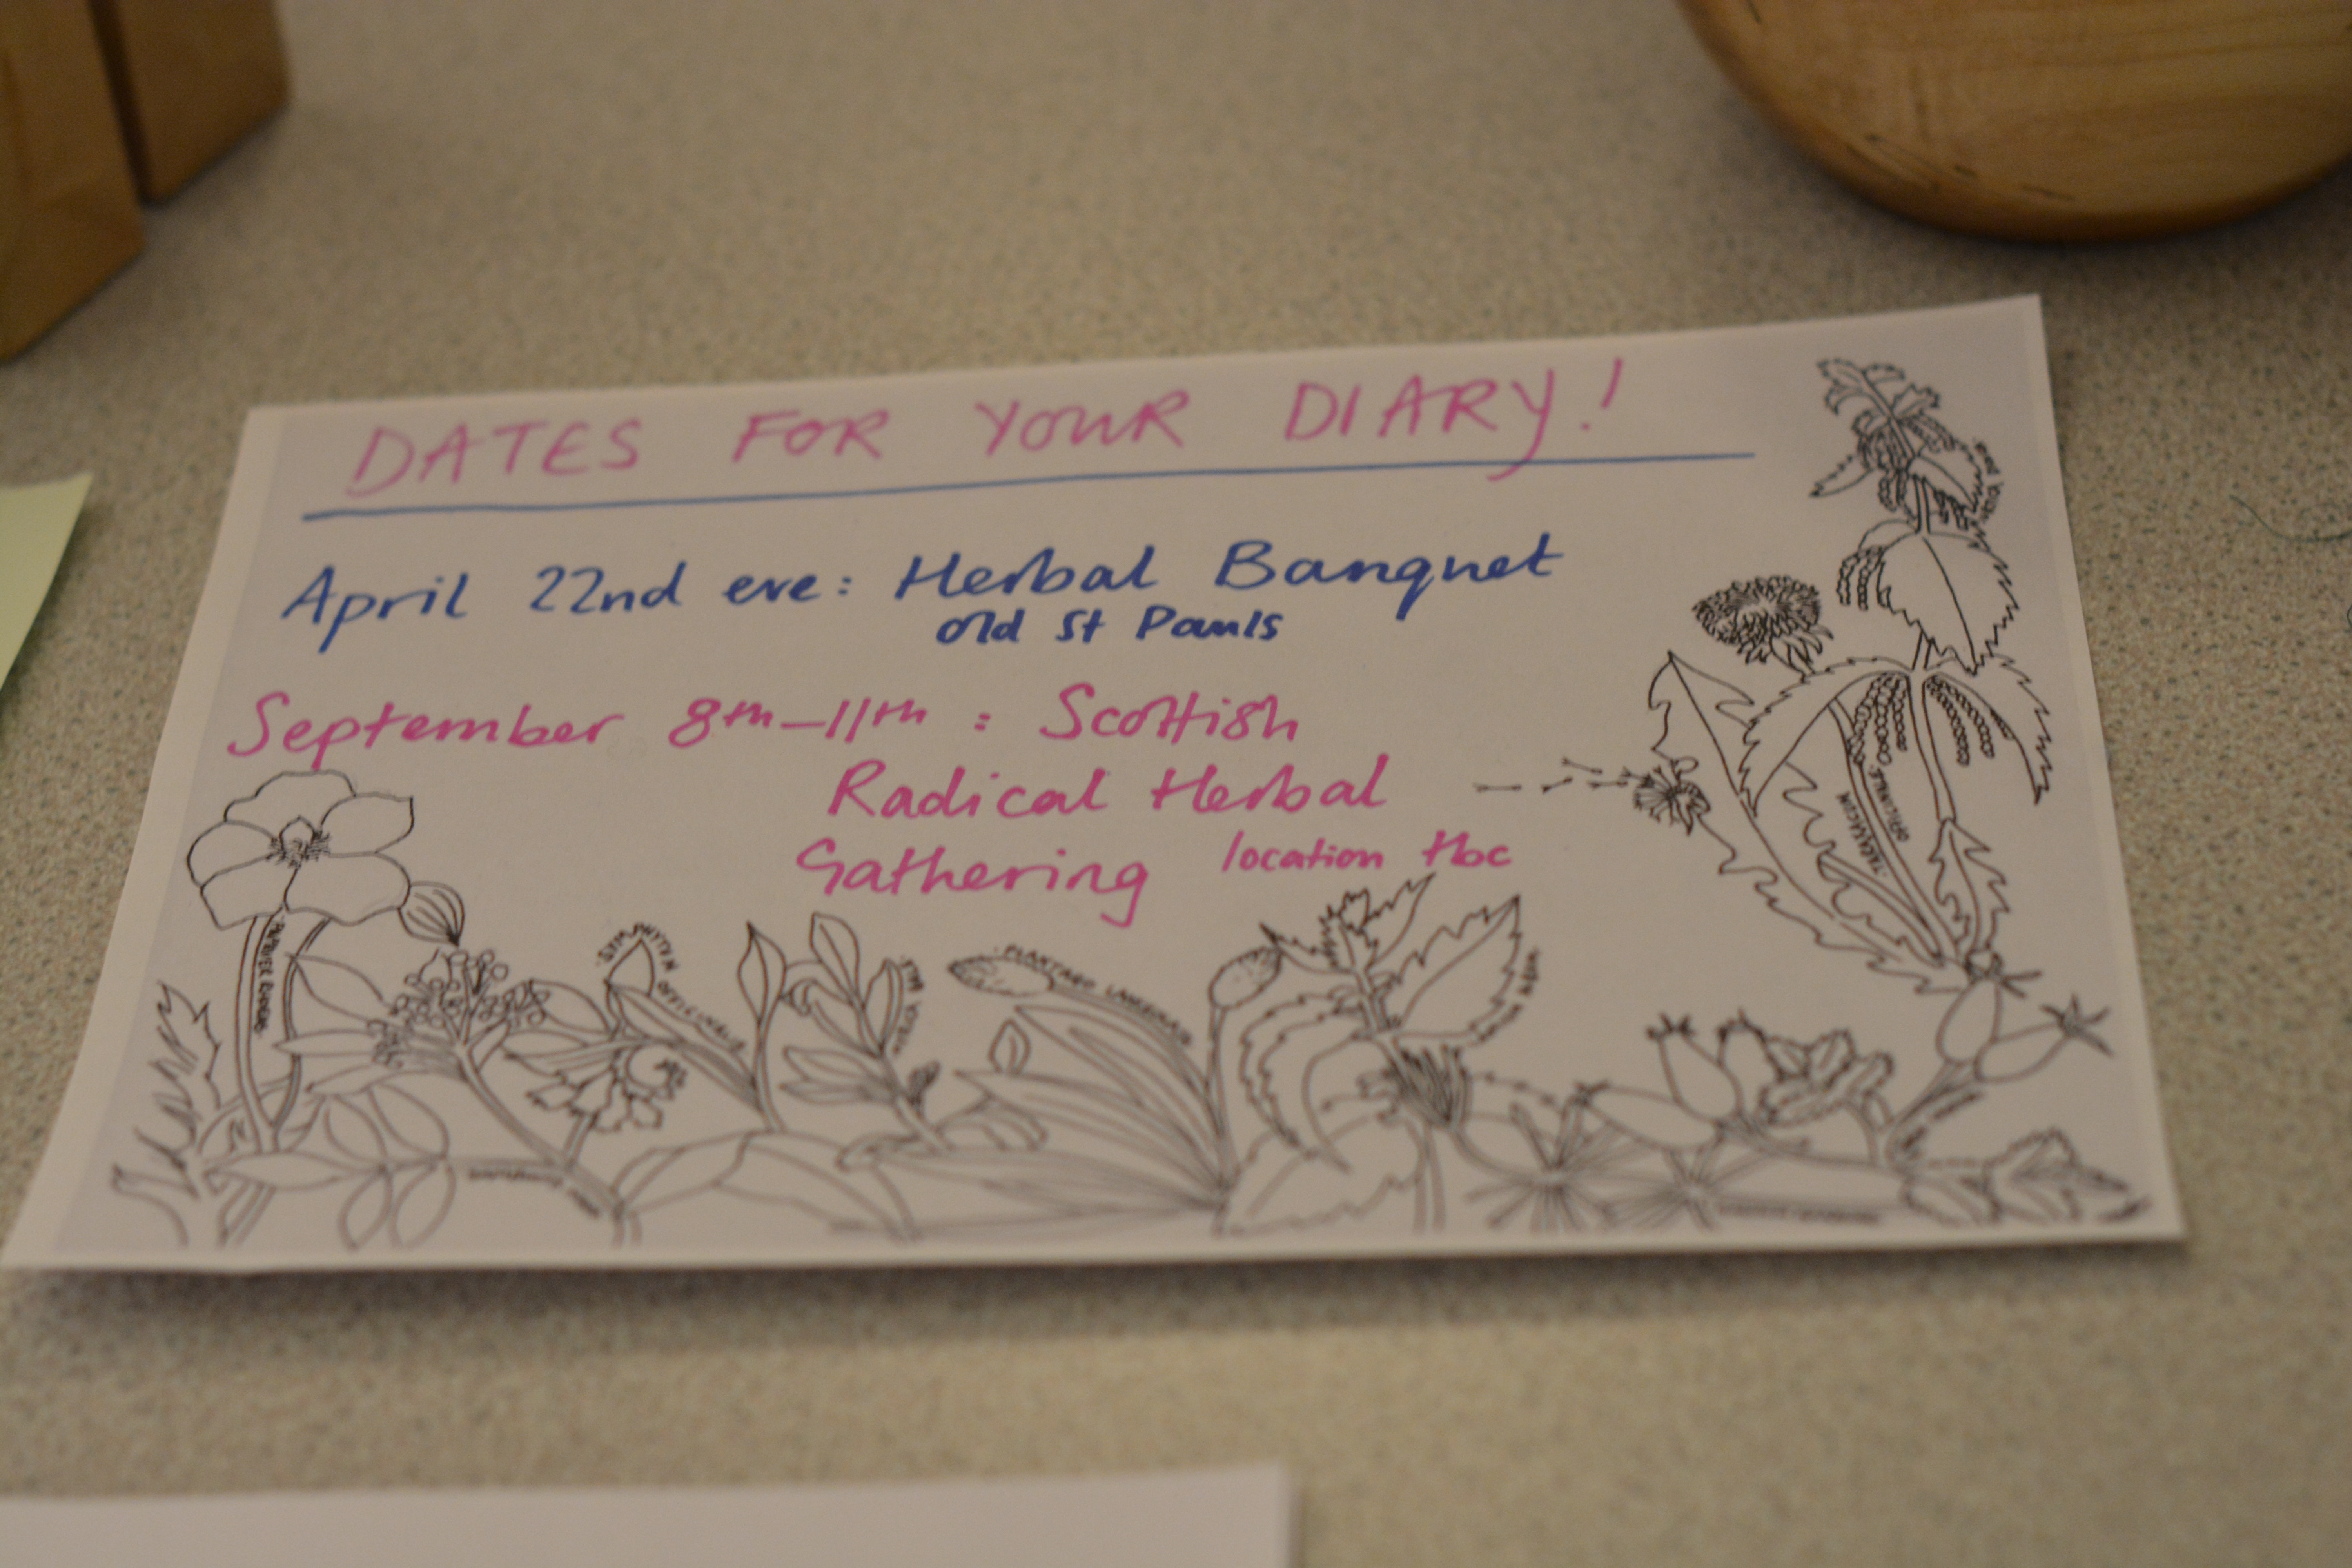 DATES FOR YOUR DIARY!
April 22nd eve: Herbal Banquet
old St Pauls
September 8th-11th: Scottish
Radical Herbal
Gathering location tbc
TARAXACUM
OFFICINALE
SYMPHYTUM OFFICINALE
PLANTAGO LANCEOLATA